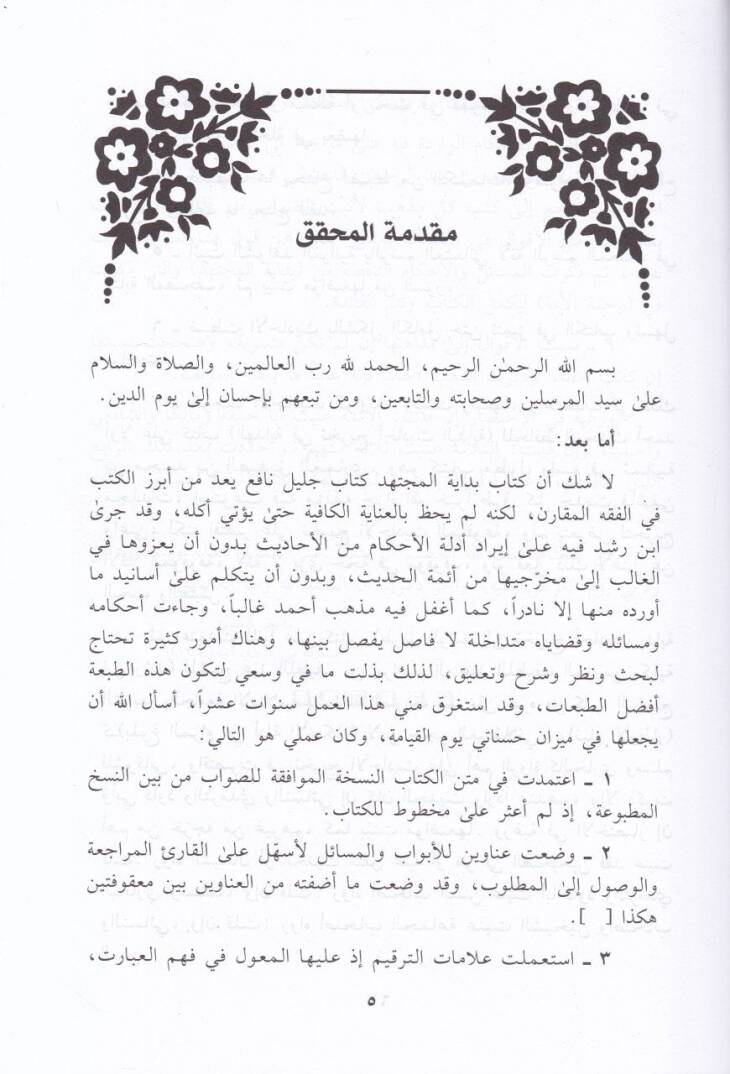 مقدمة المحقق
بسم الله الرحمٰن الرحيم، الحمد لله رب العالمين، والصلاة والسلام
علىٰ سيد المرسلين وصحابته والتابعين، ومن تبعهم بإحسان إلىٰ يوم الدين.
أما بعد:
لا شك أن كتاب بداية المجتهد كتاب جليل نافع يعد من أبرز الكتب
في الفقه المقارن، لكنه لم يحظ بالعناية الكافية حتىٰ يؤتي أكله، وقد جرىٰ
ابن رشد فيه علىٰ إيراد أدلة الأحكام من الأحاديث بدون أن يعزوها في
الغالب إلىٰ مخرّجيها من أئمة الحديث، وبدون أن يتكلم علىٰ أسانيد ما
أورده منها إلا نادراً، كما أغفل فيه مذهب أحمد غالباً، وجاءت أحكامه
ومسائله وقضاياه متداخلة لا فاصل يفصل بينها، وهناك أمور كثيرة تحتاج
لبحث ونظر وشرح وتعليق، لذلك بذلت ما في وسعي لتكون هذه الطبعة
أفضل الطبعات، وقد استغرق مني هذا العمل سنوات عشراً، أسأل الله أن
يجعلها في ميزان حسناتي يوم القيامة، وكان عملي هو التالي:
١ ـ اعتمدت في متن الكتاب النسخة الموافقة للصواب من بين النسخ
المطبوعة، إذ لم أعثر علىٰ مخطوط للكتاب.
٢ ـ وضعت عناوين للأبواب والمسائل لأسهّل علىٰ القارئ المراجعة
والوصول إلىٰ المطلوب، وقد وضعت ما أضفته من العناوين بين معقوفتين
هكذا [ ].
٣ ـ استعملت علامات الترقيم إذ عليها المعول في فهم العبارت،
٥